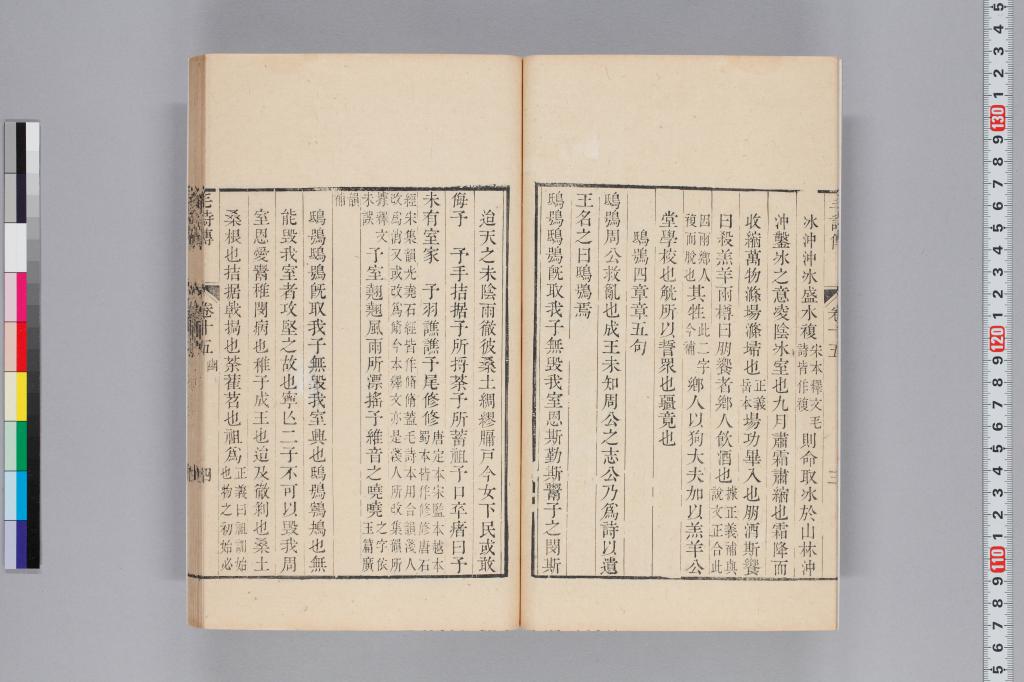 冰沖沖冰盛水複宋本釋文毛詩皆作複則命取冰於山林沖
沖鑿冰之意凌陰冰室也九月肅霜肅縮也霜降而
收縮萬物滌場滌埽也正義岳本場功畢入也朋酒斯饗
曰殺羔羊兩樽曰朋饗者鄉人飲酒也據正義補與說文正合此
因兩鄉人複而脫也其牲此二字今補鄉人以狗大夫加以羔羊公
堂學校也觥所以誓眾也疆竟也
鴟鴞四章章五句
鴟鴞周公救亂也成王未知周公之志公乃為詩以遺
王名之曰鴟鴞焉
鴟鴞鴟鴞既取我子無毀我室恩斯勤斯鬻子之閔斯
迨天之未陰雨徹彼桑土綢繆牖戶今女下民或敢
侮予 予手拮据予所捋荼予所蓄租予口卒瘏曰予
未有室家 予羽譙譙予尾修修唐定本宋監本越本蜀本皆作修修唐石
經宋集韻光堯石經皆作翛翛蓋毛詩本用合韻淺人
改為消又或改為翛今本釋文亦是淺人所改集韻所
據釋文未誤予室翹翹風雨所漂搖予維音之嘵嘵之字依玉篇廣
韻補
鴟鴞鴟鴞既取我子無毀我室興也鴟鴞鸋鴂也無
能毀我室者攻堅之故也寧亡二子不可以毀我周
室恩愛鬻稚閔病也稚子成王也迨及徹剝也桑土
桑根也拮据戟挶也荼萑苕也租為正義曰祖訓始也物之初始必
毛詩傳 卷十五 豳 四
三